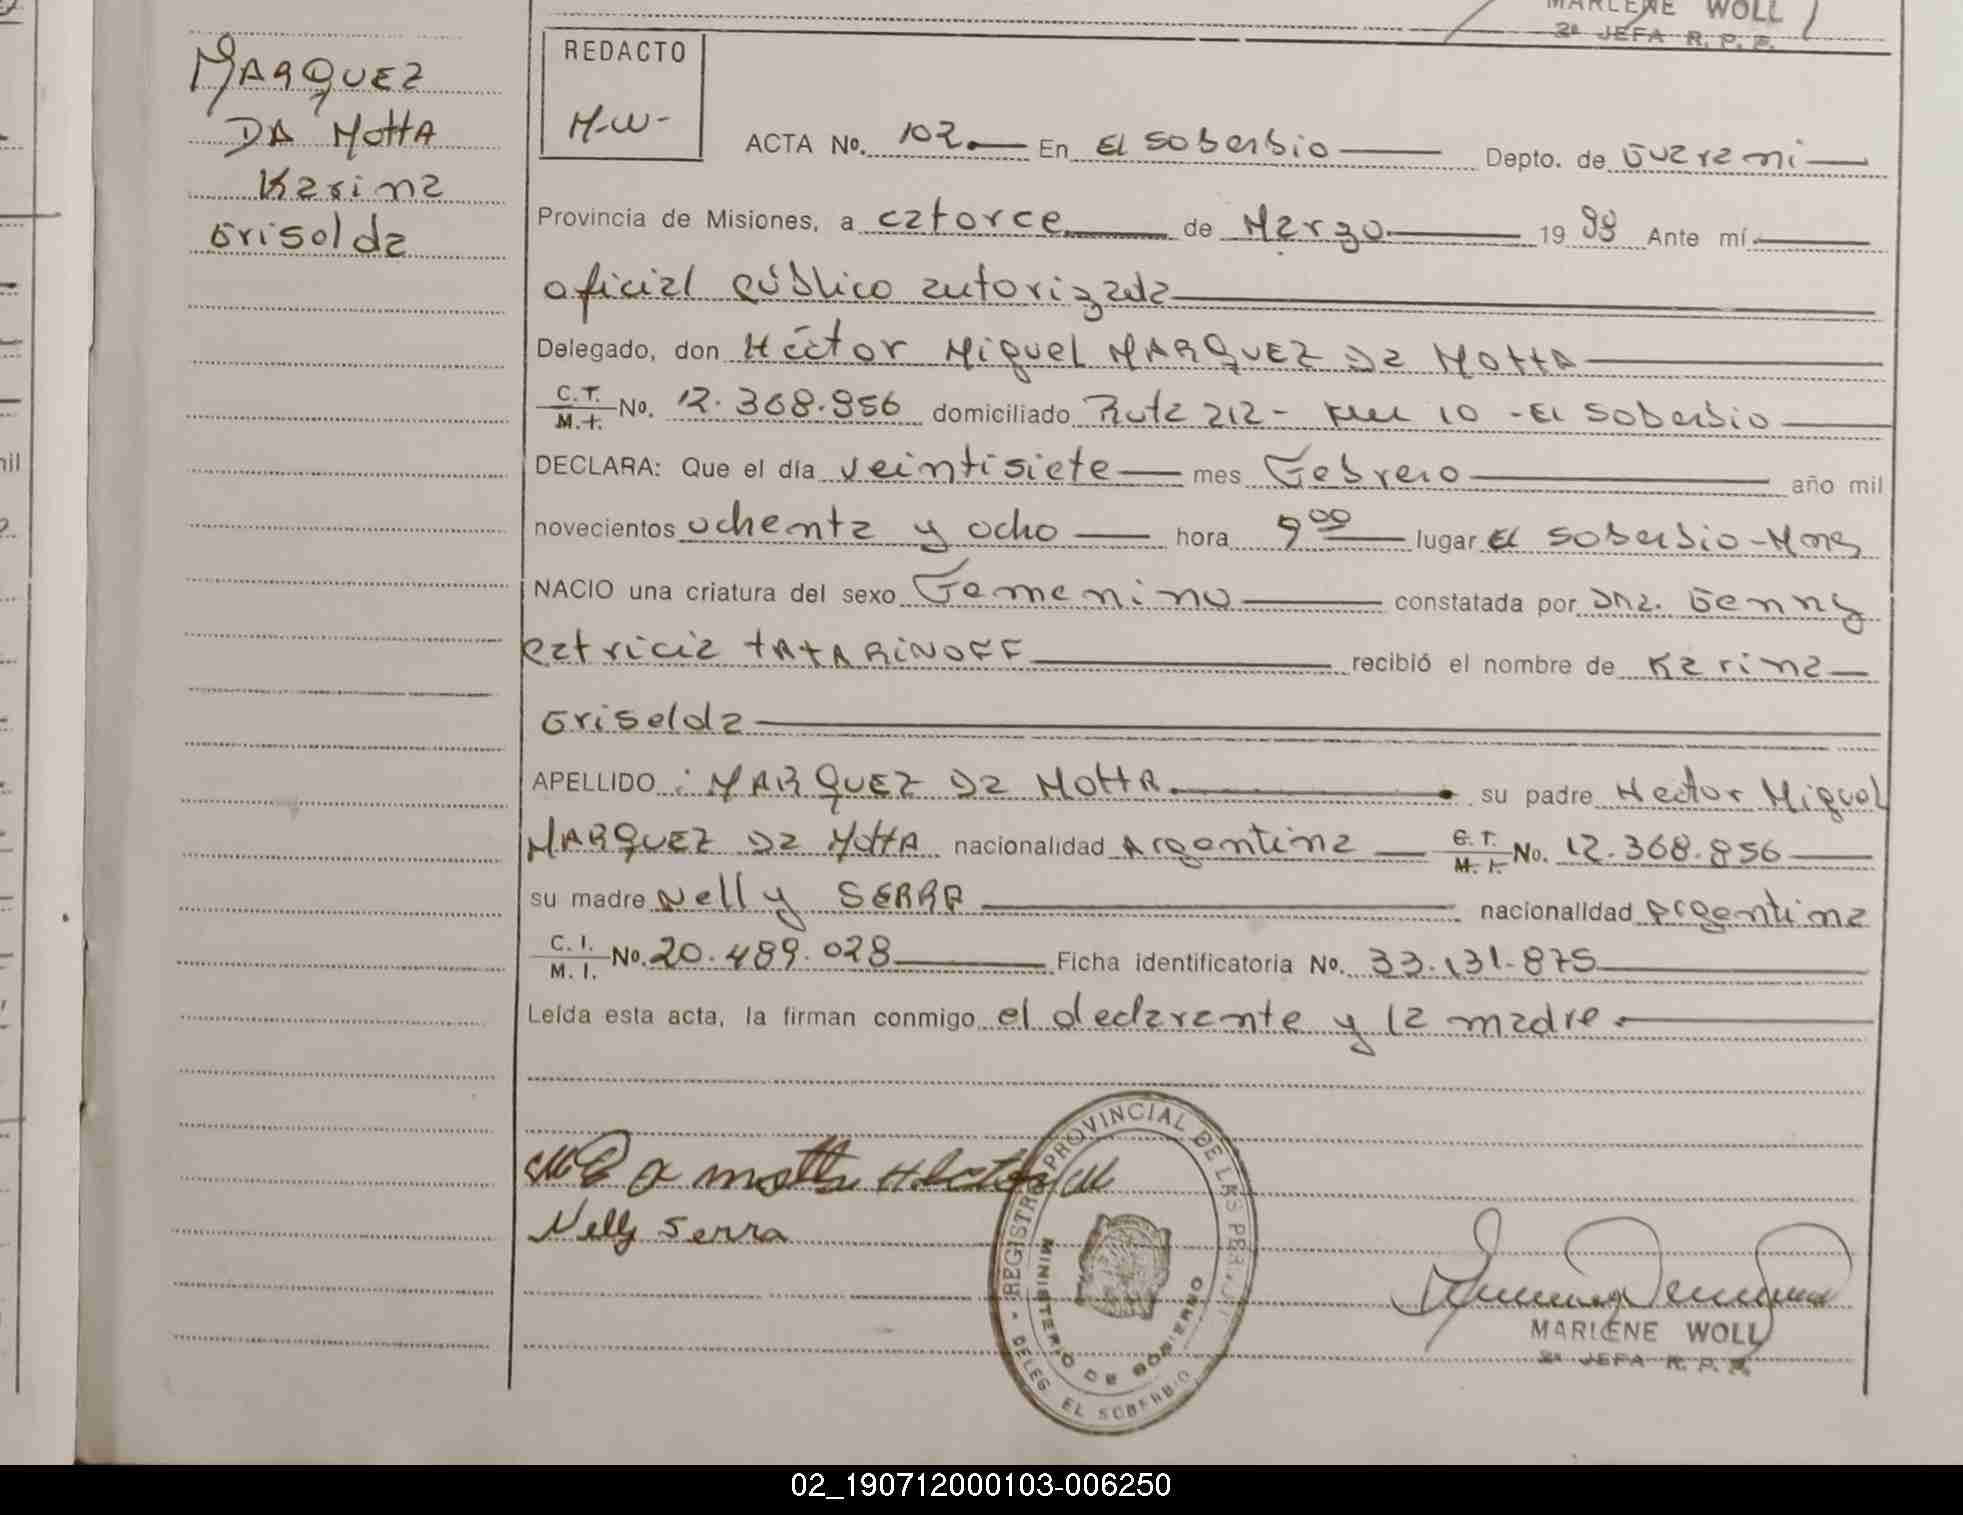 MARLENE WOLL
2ª JEFA R. P. P.
MARQUEZ
DA MOTTA
Karina
Griselda
REDACTO
M-W-
ACTA No. 102 En El Soberbio Depto. de Guarani
Provincia de Misiones, a catorce de Marzo 19 88 Ante mí
oficial público autorizada
Delegado, don Héctor Miguel MARQUEZ Da MOTTA
C.I. M.I. No. 12.368.856 domiciliado Ruta 212 - Km 10 - El Soberbio
DECLARA: Que el día veintisiete mes Febrero año mil
novecientos ochenta y ocho hora 9 00 lugar El Soberbio - Mnes
NACIO una criatura del sexo Femenino constatada por Dra. Genny
Patricia TATARINOFF recibió el nombre de Karina
Griselda
APELLIDO : MARQUEZ Da MOTTA su padre Hector Miguel
MARQUEZ Da MOTTA nacionalidad Argentina C.I. M.I. No. 12.368.856
su madre Nelly SERRA nacionalidad Argentina
C. I. M. I. No. 20.489.028 Ficha identificatoria No. 33.131.875
Leída esta acta, la firman conmigo el declarante y la madre.
motta Hector M
Nelly Serra
REGISTRO PROVINCIAL DE LAS PER
MINISTERIO DE GOBIERNO
DELEG. EL SOBERBIO
MARLENE WOLL
2ª JEFA R. P. P.
02_190712000103-006250